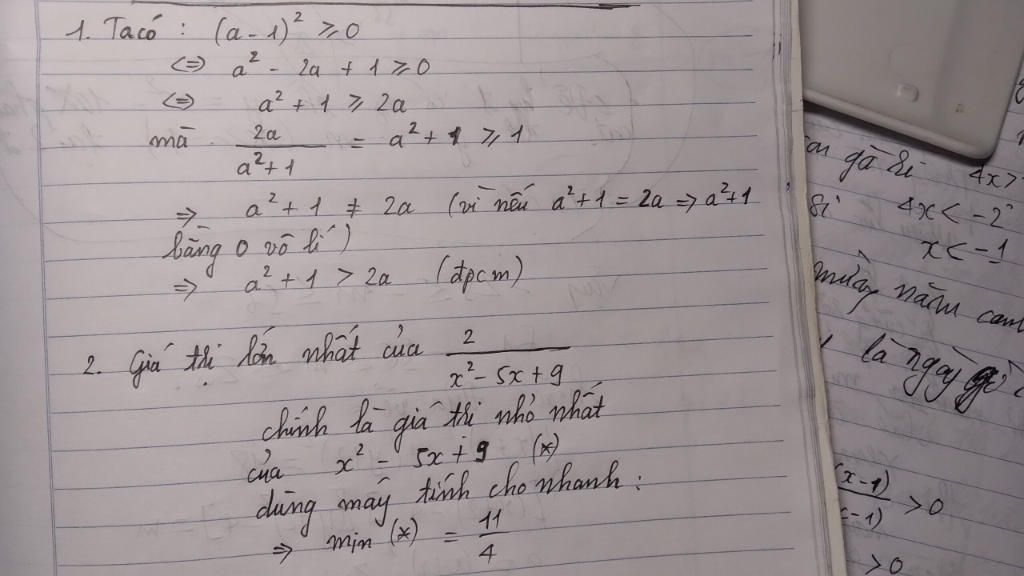 1. Ta có : (a - 1)² ≥ 0
<=> a² - 2a + 1 ≥ 0
<=> a² + 1 ≥ 2a
mà 2a/(a² + 1) = a² + 1 ≥ 1
=> a² + 1 ≠ 2a (vì nếu a² + 1 = 2a => a² + 1
bằng 0 vô lí)
=> a² + 1 > 2a (đpcm)
2. Giá trị lớn nhất của 2/(x² - 5x + 9)
chính là giá trị nhỏ nhất
của x² - 5x + 9 (*)
dùng máy tính cho nhanh :
=> min (*) = 11/4
4x >
4x < -2
x < -1
năm
là ngày
(x - 1)
> 0
> 0